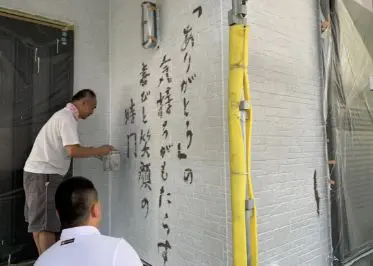 「ありがとう」の
がもたらす
喜びと笑顔の
時門